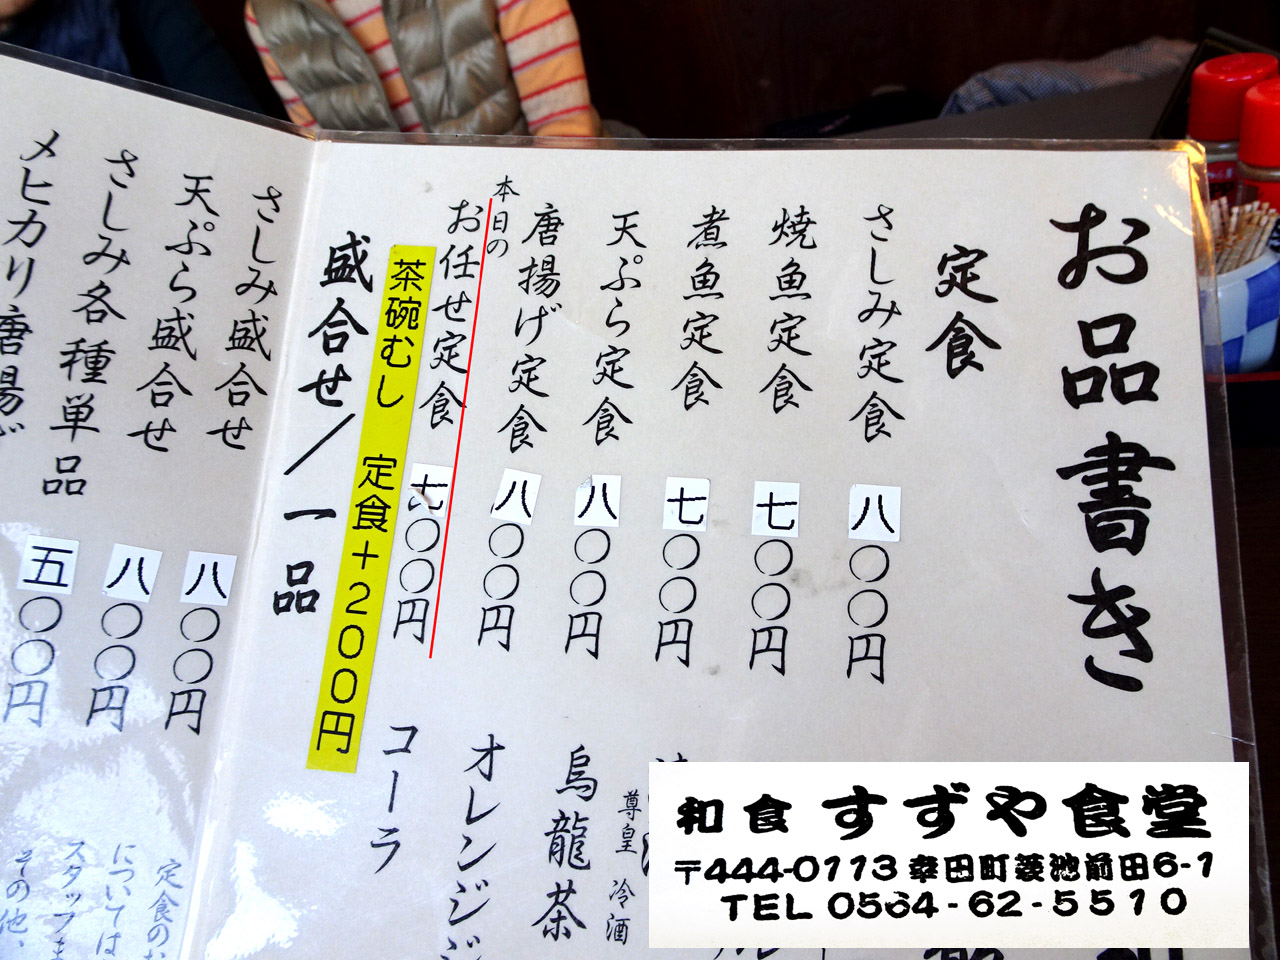 お品書き
定食
さしみ定食 八〇〇円
焼魚定食 七〇〇円
煮魚定食 七〇〇円
天ぷら定食 八〇〇円
唐揚げ定食 八〇〇円
本日の
お任せ定食 七〇〇円
茶碗むし 定食+200円
盛合せ/一品
さしみ盛合せ 八〇〇円
天ぷら盛合せ 八〇〇円
さしみ各種単品 八〇〇円
メヒカリ唐揚げ 五〇〇円
尊皇 冷酒
烏龍茶
オレンジジ
コーラ
定食のお
については
スタッフま
その他、
和食 すずや食堂
〒444-0113 幸田町菱池前田6-1
TEL 0564-62-5510